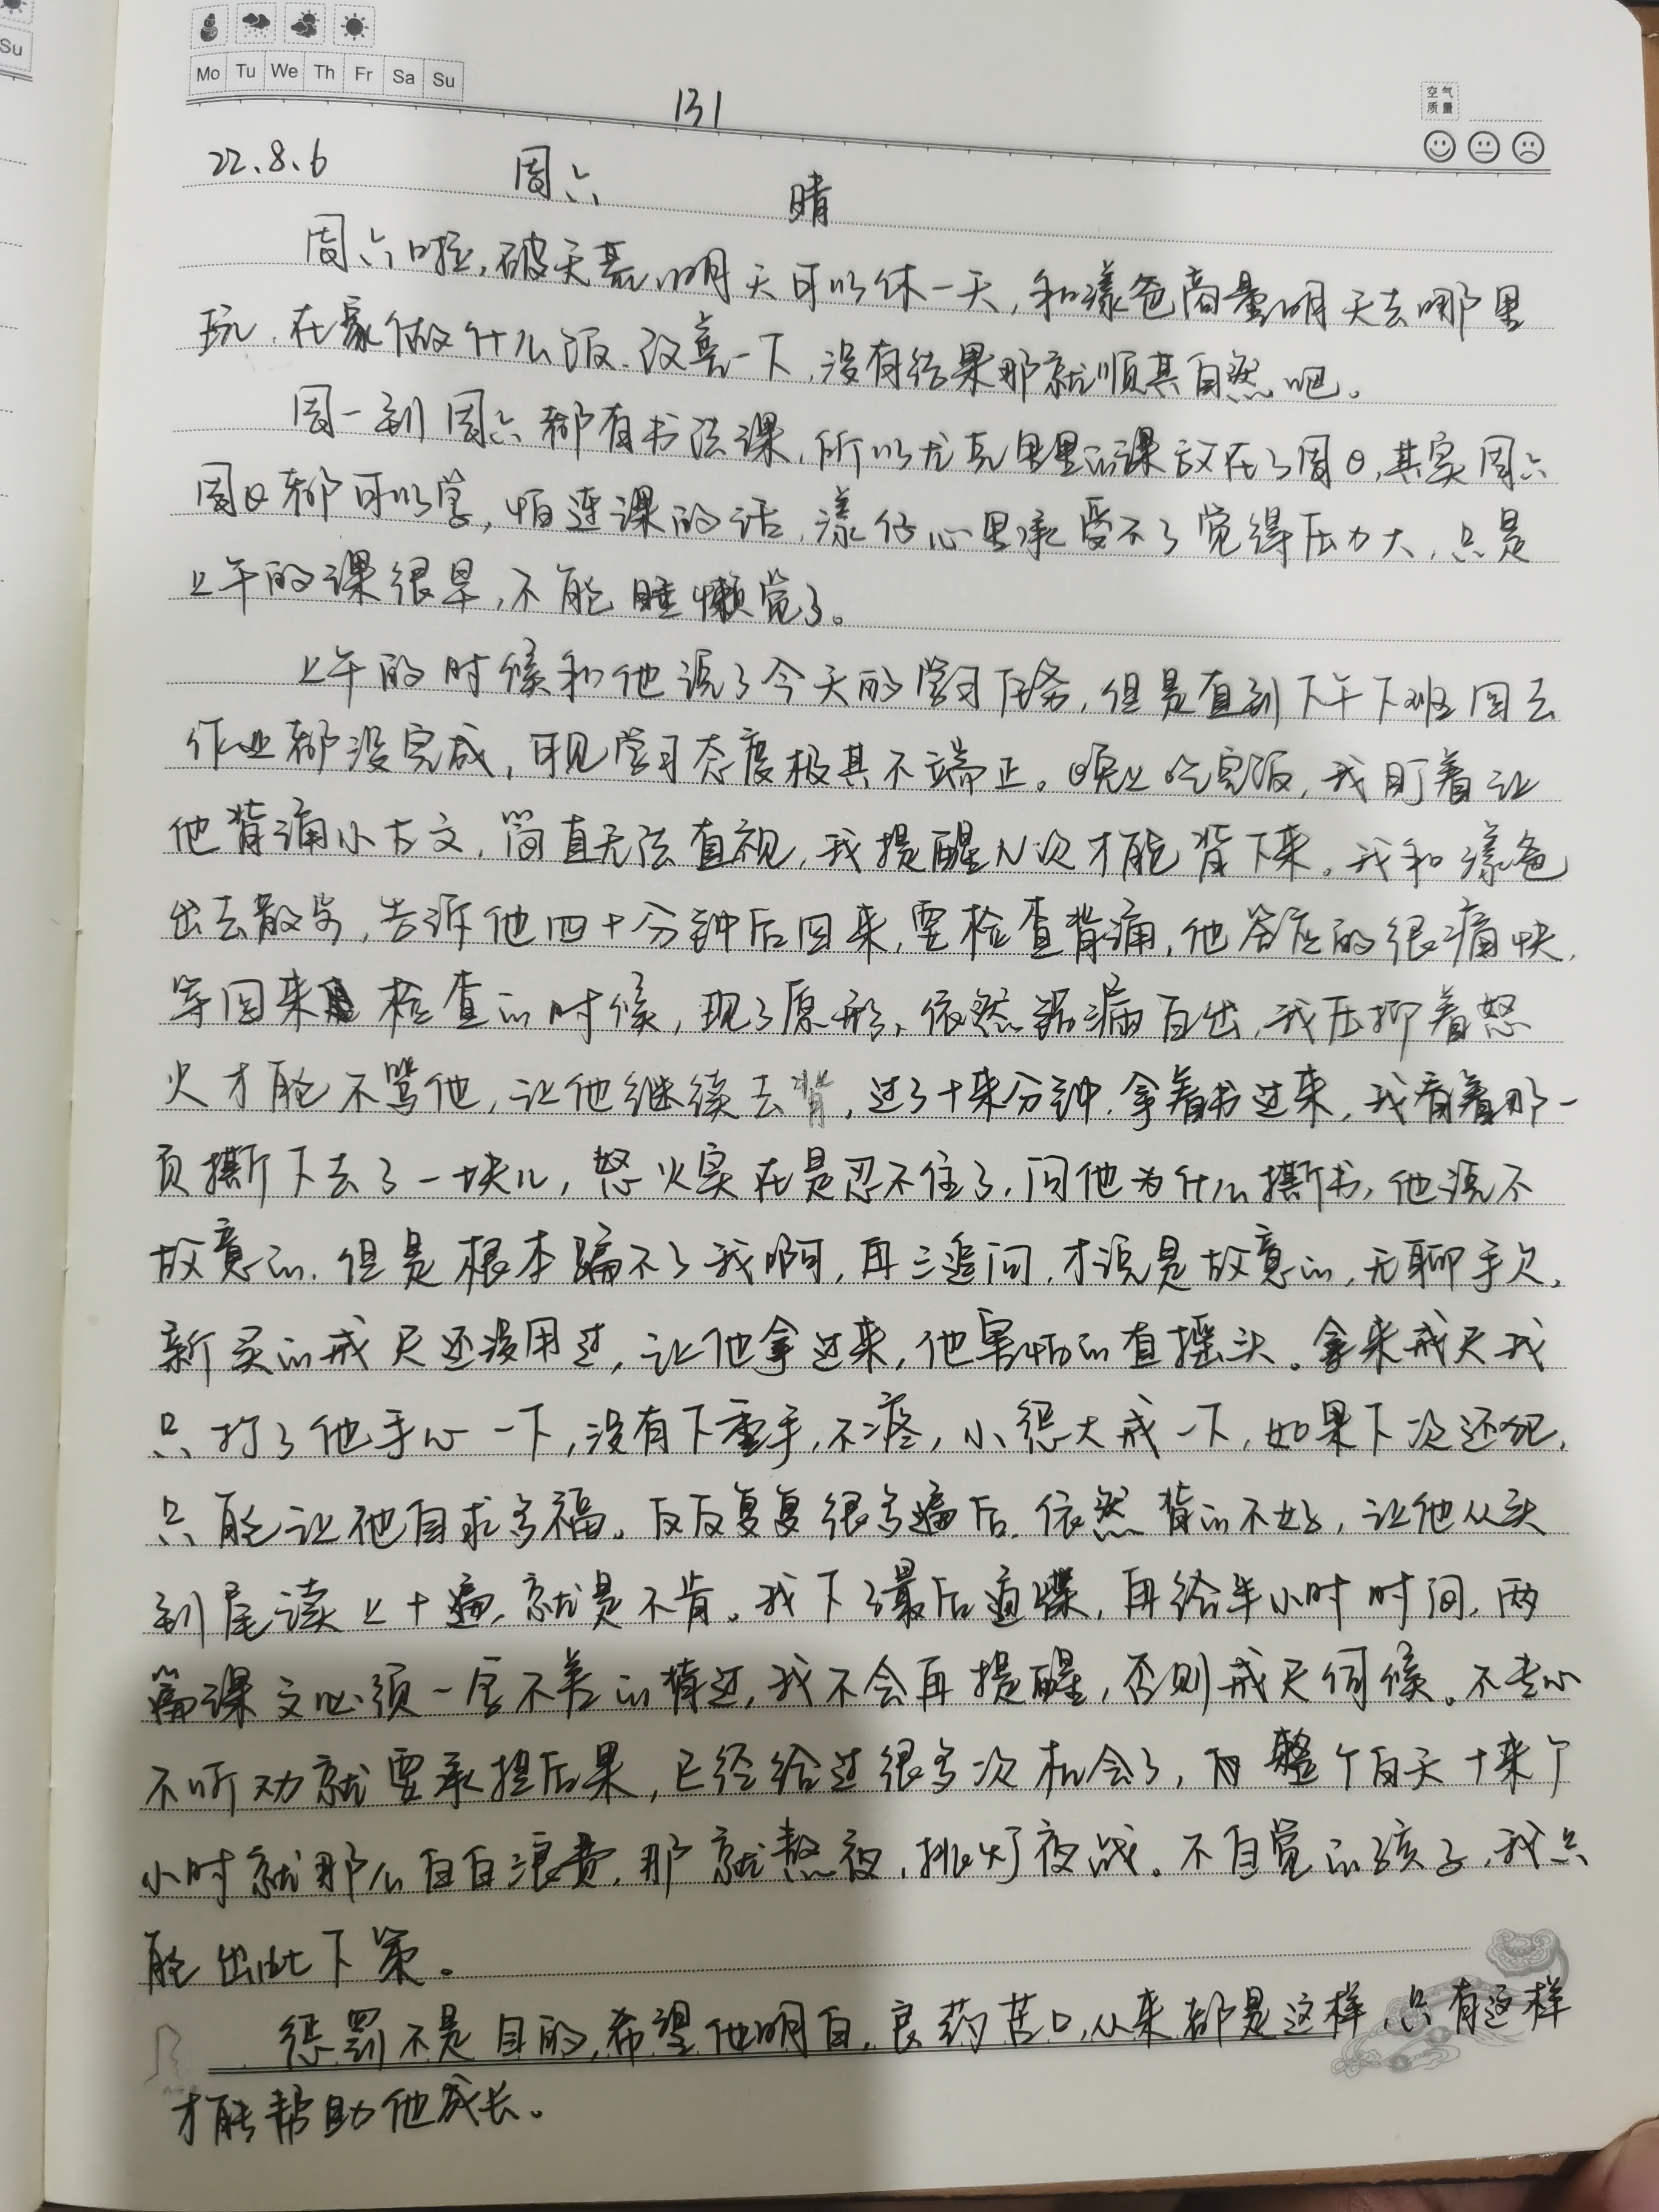 Su
Mo Tu We Th Fr Sa Su
131
空气
质量
22.8.6 周六 晴
周六啦,破天荒明天可以休一天,和漾爸商量明天去哪里
玩,在家做什么饭、改善一下,没有结果那就顺其自然吧。
周一到周六都有书法课,所以尤克里里的课放在了周日,其实周六
周日都可以学,怕连课的话,漾仔心里承受不了觉得压力大,只是
上午的课很早,不能睡懒觉了。
上午的时候和他说了今天的学习任务,但是直到下午下班回去
作业都没完成,可见学习态度极其不端正。晚上吃完饭,我盯着让
他背诵小古文,简直无法直视,我提醒N次才能背下来。我和漾爸
出去散步,告诉他四十分钟后回来,要检查背诵,他答应的很痛快,
等回来检查的时候,现了原形,依然错漏百出,我压抑着怒
火才能不骂他,让他继续去背,过了十来分钟,拿着书过来,我看着那一
页撕下去了一块儿,怒火实在是忍不住了,问他为什么撕书,他说不
故意的,但是根本骗不了我啊,再三追问,才说是故意的,无聊手欠,
新买的戒尺还没用过,让他拿过来,他害怕的直摇头。拿来戒尺我
只打了他手心一下,没有下重手,不疼,小惩大戒一下,如果下次还犯,
只能让他自求多福。反反复复很多遍后,依然背的不好,让他从头
到尾读上十遍,就是不肯。我下了最后通牒,再给半小时时间,两
篇课文必须一字不差的背过,我不会再提醒,否则戒尺伺候。不走心
不听劝就要承担后果,已经给过很多次机会了,整个白天十来个
小时就那么白白浪费,那就熬夜,挑灯夜战。不自觉的孩子,我只
能出此下策。
惩罚不是目的,希望他明白,良药苦口,从来都是这样,只有这样
才能帮助他成长。